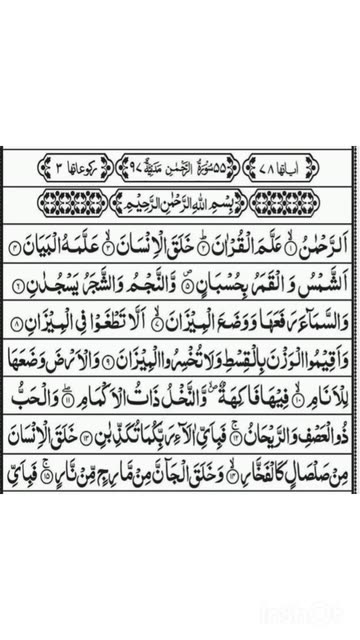 اٰیاتھا ٧٨ ٥٥ سُوْرَةُ الرَّحْمٰنِ مَدَنِيَّةٌ ٩٧ رکوعاتھا ٣
بِسْمِ اللهِ الرَّحْمٰنِ الرَّحِيْمِ
اَلرَّحْمٰنُ ۙ﴿١﴾ عَلَّمَ الْقُرْاٰنَ ؕ﴿٢﴾ خَلَقَ الْاِنْسَانَ ۙ﴿٣﴾ عَلَّمَهُ الْبَيَانَ ﴿٤﴾
اَلشَّمْسُ وَ الْقَمَرُ بِحُسْبَانٍ ۪﴿٥﴾ وَّ النَّجْمُ وَ الشَّجَرُ يَسْجُدٰنِ ﴿٦﴾
وَ السَّمَآءَ رَفَعَهَا وَ وَضَعَ الْمِيْزَانَ ۙ﴿٧﴾ اَلَّا تَطْغَوْا فِي الْمِيْزَانِ ﴿٨﴾
وَ اَقِيْمُوا الْوَزْنَ بِالْقِسْطِ وَ لَا تُخْسِرُوا الْمِيْزَانَ ﴿٩﴾ وَ الْاَرْضَ وَضَعَهَا
لِلْاَنَامِ ۙ﴿١٠﴾ فِيْهَا فَاكِهَةٌ ۪ۙ وَّ النَّخْلُ ذَاتُ الْاَكْمَامِ ۖ﴿١١﴾ وَ الْحَبُّ
ذُو الْعَصْفِ وَ الرَّيْحَانُ ۚ﴿١٢﴾ فَبِاَيِّ اٰلَآءِ رَبِّكُمَا تُكَذِّبٰنِ ﴿١٣﴾ خَلَقَ الْاِنْسَانَ
مِنْ صَلْصَالٍ كَالْفَخَّارِ ۙ﴿١٤﴾ وَ خَلَقَ الْجَآنَّ مِنْ مَّارِجٍ مِّنْ نَّارٍ ۚ﴿١٥﴾ فَبِاَيِّ